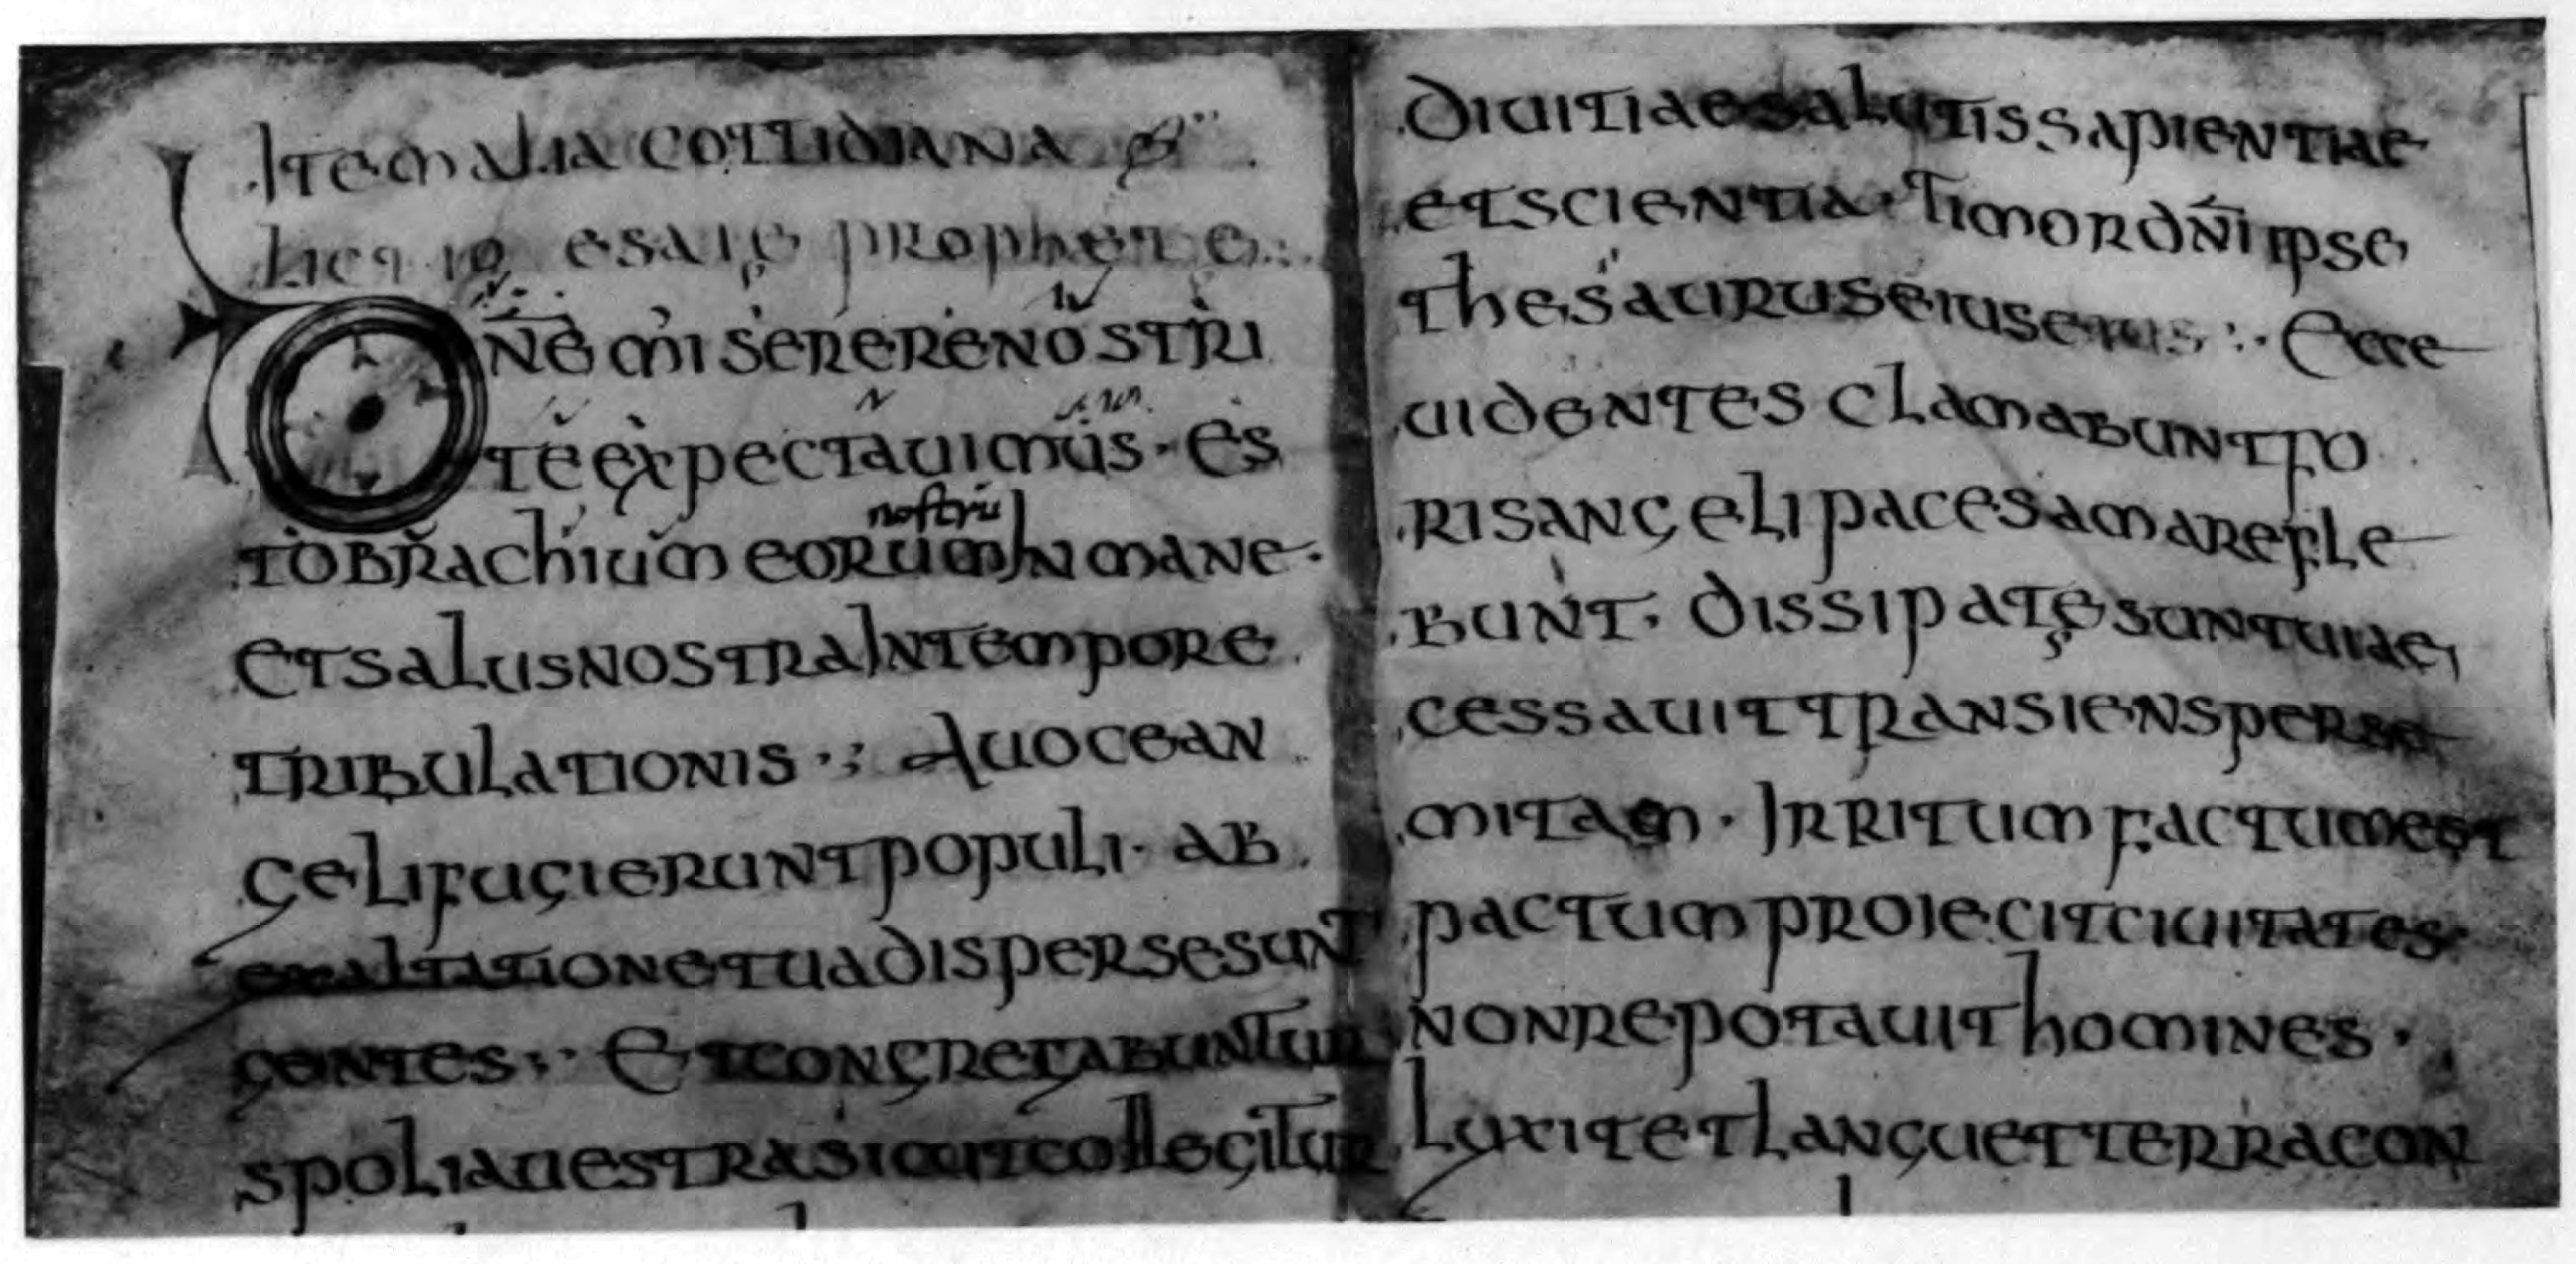 Item alia cottidiana
Lectio esaie prophete:.
DNE miserere nostri
te expectavimus · es
to brachium eorum In mane ·
nostrum
et salus nostra In tempore
tribulationis ·: A voce an
geli fugierunt populi · ab
exaltatione tua disperse sunt
gentes :· Et congregabuntur
spolia vestra sicut collegitur
divitiae salutis sapientiae
et scientia · Timor dni ipse
thesaurus eius :· Ecce
videntes clamabunt fo
ris angeli paces amare fle
bunt · dissipate sunt viae
cessavit transiens per se
mitam · Irritum factum est
pactum proiecit civitates
non repotavit homines ·
Luxit et languet terra con